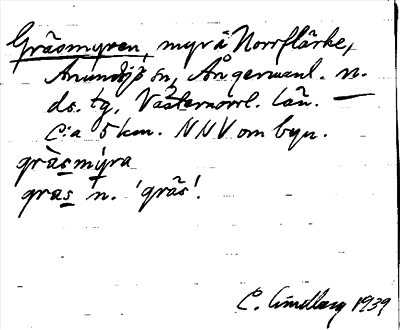 Gräsmyren, myr å Norrflärke,
Anundsjö sn, Ångermanl. n.
ds. tg, Västernorrl. län. —
C:a 5 km. NNV om byn.
gräsmýra
gras n. 'gräs'.
C. Lindberg 1939